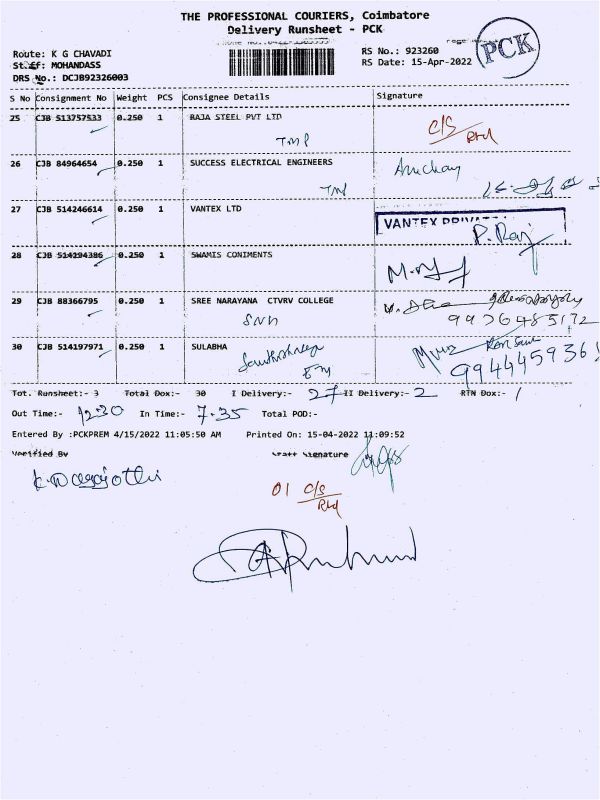 THE PROFESSIONAL COURIERS, Coimbatore
Delivery Runsheet - PCK
Route: K G CHAVADI
RS No.: 923260
PCK
Staff: MOHANDASS
RS Date: 15-Apr-2022
DRS No.: DCJB92326003
S No Consignment No Weight PCS Consignee Details Signature
25 CJB 513757533 0.250 1 RAJA STEEL PVT LTD
C/S Rtd
26 CJB 84964654 0.250 1 SUCCESS ELECTRICAL ENGINEERS
27 CJB 514246614 0.250 1 VANTEX LTD
VANTEX
P. Raj
28 CJB 514194386 0.250 1 SWAMIS CONIMENTS
29 CJB 88366795 0.250 1 SREE NARAYANA CTVRV COLLEGE
SNN
9926485172
30 CJB 514197971 0.250 1 SULABHA
9944459361
Tot. Runsheet:- 3 Total Dox:- 30 I Delivery:- 27 II Delivery:- 2 RTN Dox:- 1
Out Time:- 12:30 In Time:- 7.35 Total POD:-
Entered By :PCKPREM 4/15/2022 11:05:50 AM Printed On: 15-04-2022 11:09:52
Verified By Staff Signature
01 C/S Rtd